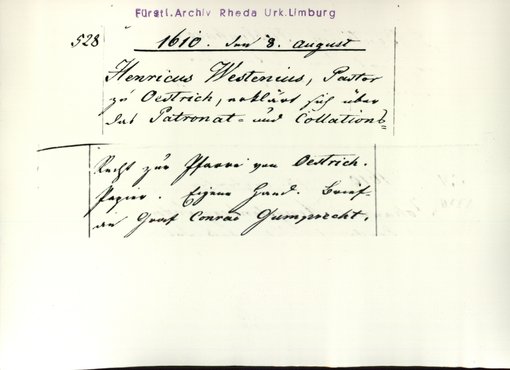 Fürstl. Archiv Rheda Urk. Limburg
528 1610. den 8. August
Henricus Westenius, Pastor
zu Oestrich, erklärt sich über
das Patronat- und Collations-
Recht zur Pfarre von Oestrich.
Papier. Eigene Hand. Brief
an Graf Conrad Gumprecht.